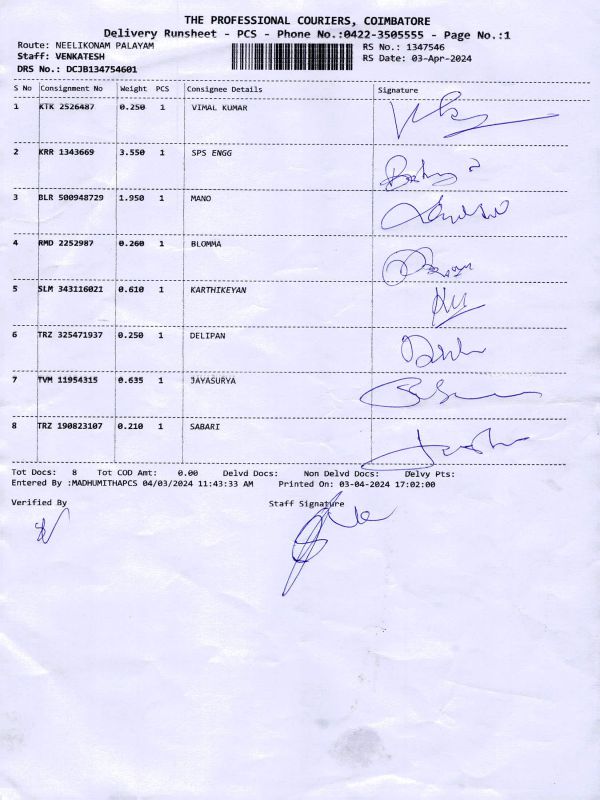 THE PROFESSIONAL COURIERS, COIMBATORE
Delivery Runsheet - PCS - Phone No.:0422-3505555 - Page No.:1
Route: NEELIKONAM PALAYAM RS No.: 1347546
Staff: VENKATESH RS Date: 03-Apr-2024
DRS No.: DCJB134754601
S No Consignment No Weight PCS Consignee Details Signature
1 KTK 2526487 0.250 1 VIMAL KUMAR
2 KRR 1343669 3.550 1 SPS ENGG
3 BLR 500948729 1.950 1 MANO
4 RMD 2252987 0.260 1 BLOMMA
5 SLM 343116021 0.610 1 KARTHIKEYAN
6 TRZ 325471937 0.250 1 DELIPAN
7 TVM 11954315 0.635 1 JAYASURYA
8 TRZ 190823107 0.210 1 SABARI
Tot Docs: 8 Tot COD Amt: 0.00 Delvd Docs: Non Delvd Docs: Delvy Pts:
Entered By :MADHUMITHAPCS 04/03/2024 11:43:33 AM Printed On: 03-04-2024 17:02:00
Verified By Staff Signature